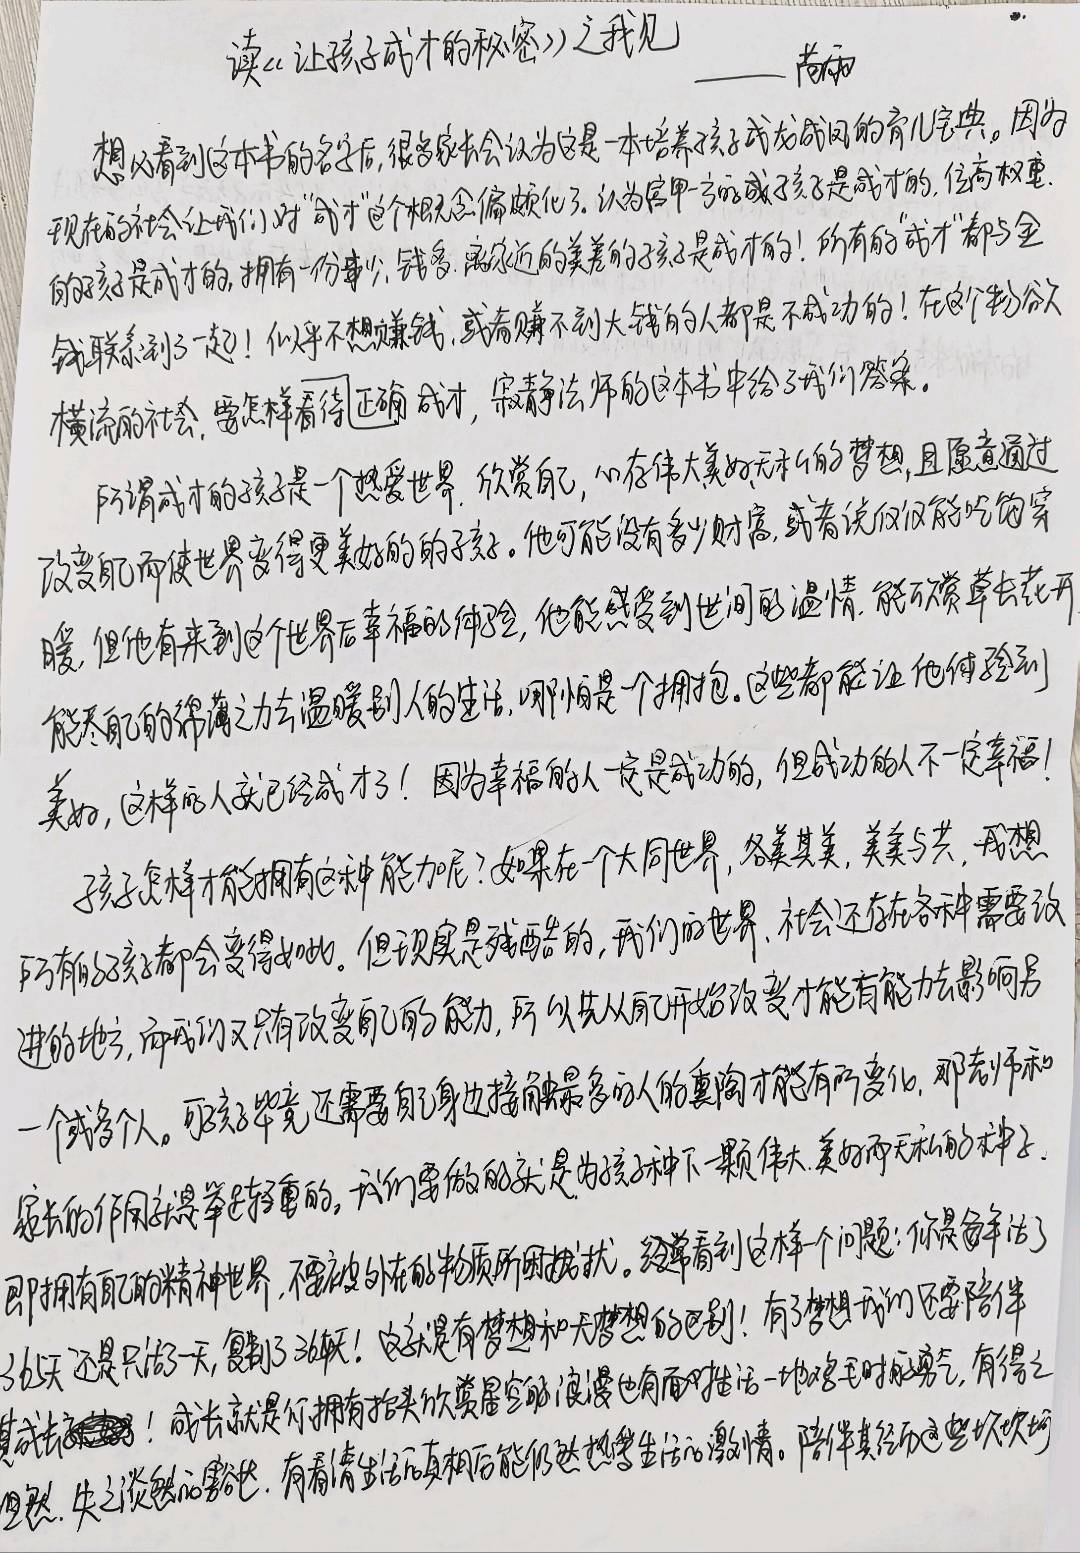 读《让孩子成才的秘密》之我见
——苗雨
想必看到这本书的名字后,很多家长会认为这是一本培养孩子成龙成凤的育儿宝典。因为
现在的社会让我们对"成才"这个概念偏颇化了。认为富甲一方的孩子是成才的,位高权重.
的孩子是成才的,拥有一份事少、钱多、离家近的美差的孩子是成才的!所有的"成才"都与金
钱联系到了一起!似乎不想赚钱,或者赚不到大钱的人都是不成功的!在这个物欲
横流的社会,要怎样看待正确成才,寂静法师的这本书中给了我们答案。
所谓成才的孩子是一个热爱世界、欣赏自己,心存伟大美好无私的梦想,且愿意通过
改变自己而使世界变得更美好的的孩子。他可能没有多少财富,或者说仅仅能吃饱穿
暖,但他有来到这个世界后幸福的体验,他能感受到世间的温情、能欣赏草长花开、
能尽自己的绵薄之力去温暖别人的生活,哪怕是一个拥抱。这些都能让他体验到
美好,这样的人就已经成才了!因为幸福的人一定是成功的,但成功的人不一定幸福!
孩子怎样才能拥有这种能力呢?如果在一个大同世界,各美其美,美美与共,我想
所有的孩子都会变得如此。但现实是残酷的,我们的世界、社会还存在各种需要改
进的地方,而我们又只有改变自己的能力,所以先从自己开始改变才能有能力去影响另
一个或多个人。可孩子毕竟还需要自己身边接触最多的人的熏陶才能有所变化,那老师和
家长的作用就是举足轻重的。我们要做的就是为孩子种下一颗伟大、美好而无私的种子.
即拥有自己的精神世界,不要被外在的物质所困扰。经常看到这样一个问题:你是每年活了
365天还是只活了一天,复制了364天!这就是有梦想和无梦想的区别!有了梦想我们还要陪伴
其成长!成长就是你拥有抬头欣赏星空的浪漫也有面对生活一地鸡毛时的勇气,有得之
坦然、失之淡然的豁达、有看清生活的真相后能仍然热爱生活的激情。陪伴其经历这些坎坎坷